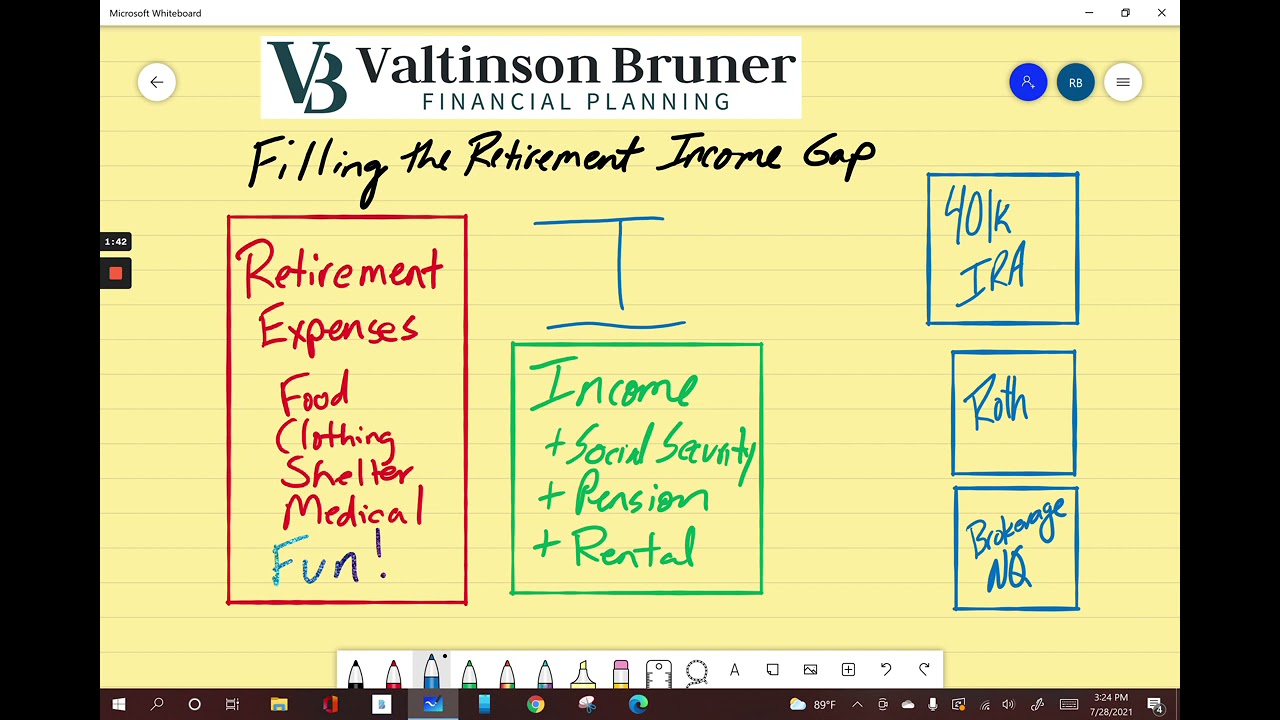 Microsoft Whiteboard
VB Valtinson Bruner
FINANCIAL PLANNING
RB
Filling the Retirement Income Gap
1:42
Retirement
Expenses
Food
Clothing
Shelter
Medical
Fun!
Income
+ Social Security
+ Pension
+ Rental
401k
IRA
Roth
Brokerage
NQ
A
89°F
3:24 PM
7/28/2021
4